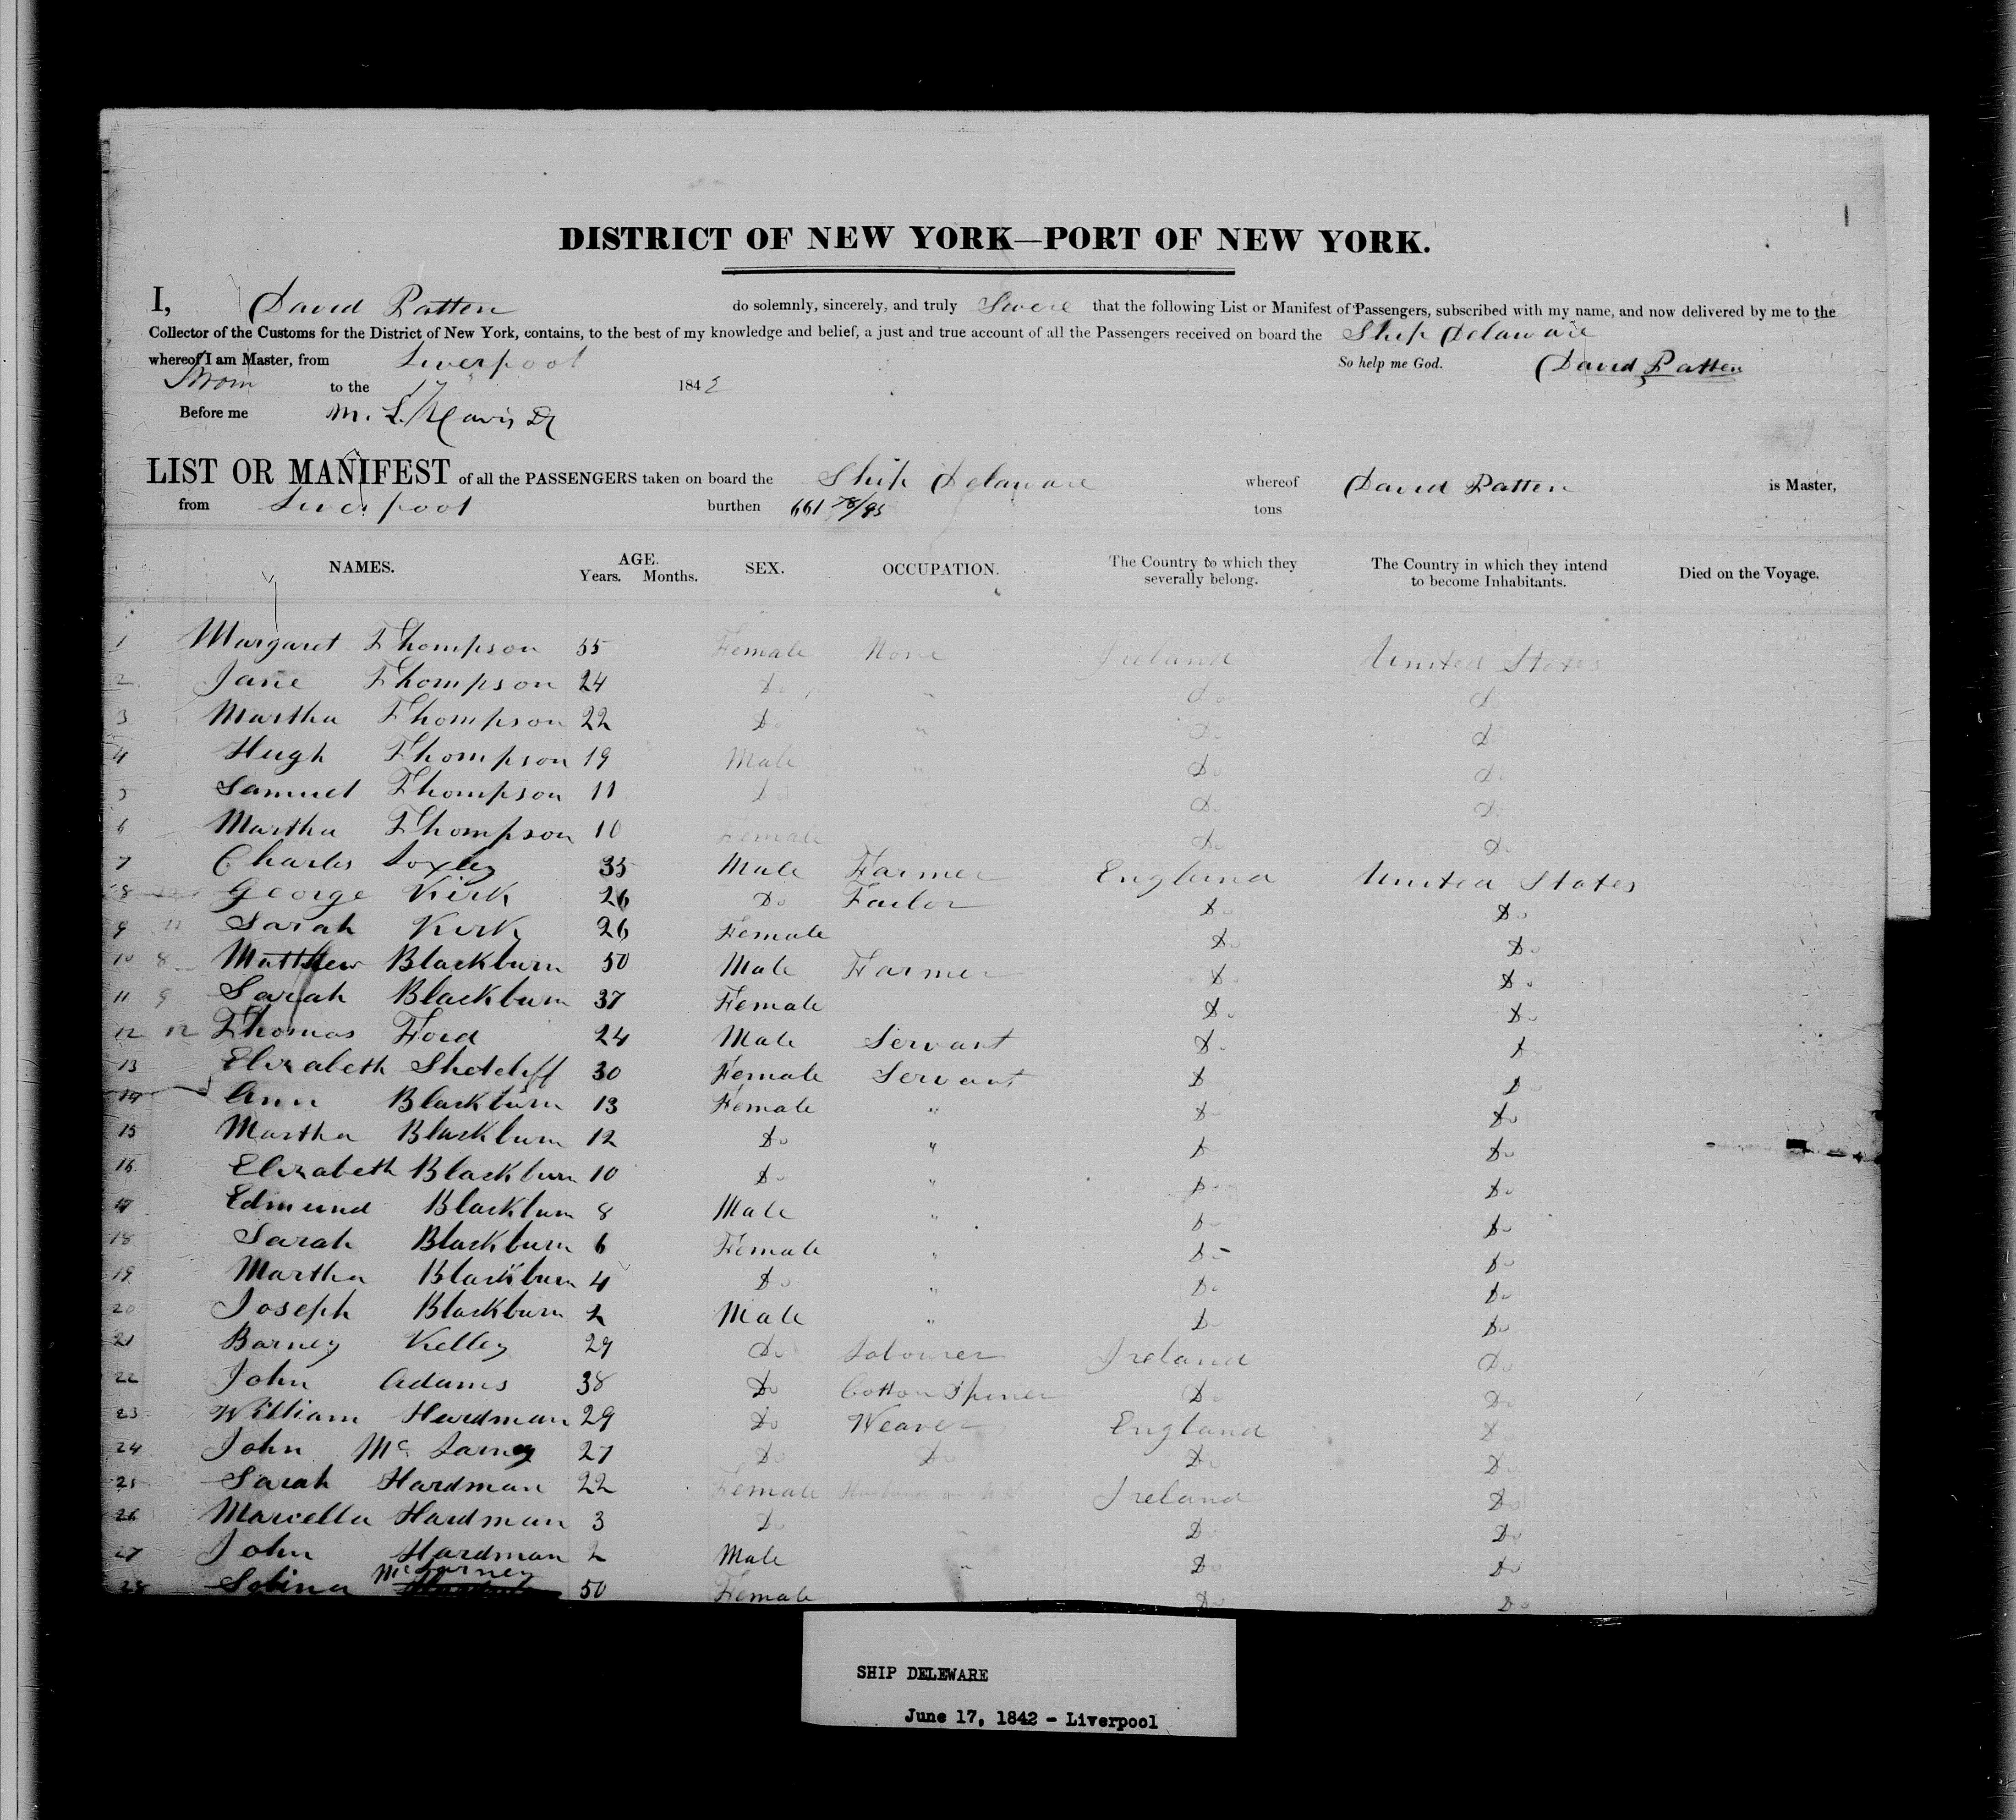 DISTRICT OF NEW YORK—PORT OF NEW YORK.
I, David Patten do solemnly, sincerely, and truly Swere that the following List or Manifest of Passengers, subscribed with my name, and now delivered by me to the
Collector of the Customs for the District of New York, contains, to the best of my knowledge and belief, a just and true account of all the Passengers received on board the Ship Delaware
whereof I am Master, from Liverpool So help me God. David Patten
to the 17 1842
Before me M. L. Davis
LIST OR MANIFEST of all the PASSENGERS taken on board the Ship Delaware whereof David Patten is Master,
from Liverpool burthen 661 78/95 tons
NAMES. AGE. Years. Months. SEX. OCCUPATION. The Country to which they severally belong. The Country in which they intend to become Inhabitants. Died on the Voyage.
1 Margaret Thompson 55 Female None Ireland United States
2 Jane Thompson 24 Do " Do Do
3 Martha Thompson 22 Do " Do Do
4 Hugh Thompson 19 Male " Do Do
5 Samuel Thompson 11 Do Do Do
6 Martha Thompson 10 Female Do Do
7 Charles Loxley 35 Male Farmer England United States
8 George Kirk 26 Do Tailor Do Do
9 11 Sarah Kirk 26 Female Do Do
10 8 Matthew Blackburn 50 Male Farmer Do Do
11 9 Sarah Blackburn 37 Female Do Do
12 12 Thomas Ford 24 Male Servant Do Do
13 Elizabeth Shetcliff 30 Female Servant Do Do
14 Ann Blackburn 13 Female " Do Do
15 Martha Blackburn 12 Do " Do Do
16 Elizabeth Blackburn 10 Do " Do Do
17 Edmund Blackburn 8 Male " Do Do
18 Sarah Blackburn 6 Female " Do Do
19 Martha Blackburn 4 Do " Do Do
20 Joseph Blackburn 2 Male " Do Do
21 Barney Kelley 29 Do Labourer Ireland Do
22 John Adams 38 Do Cotton Spiner Do Do
23 William Hardman 29 Do Weaver England Do
24 John Mc Larney 27 Do Do Do Do
25 Sarah Hardman 22 Female Ireland Do
26 Marcella Hardman 3 Do " Do Do
27 John Hardman 2 Male " Do Do
28 Selina McLarney 50 Female Do Do
SHIP DELEWARE
June 17, 1842 - Liverpool